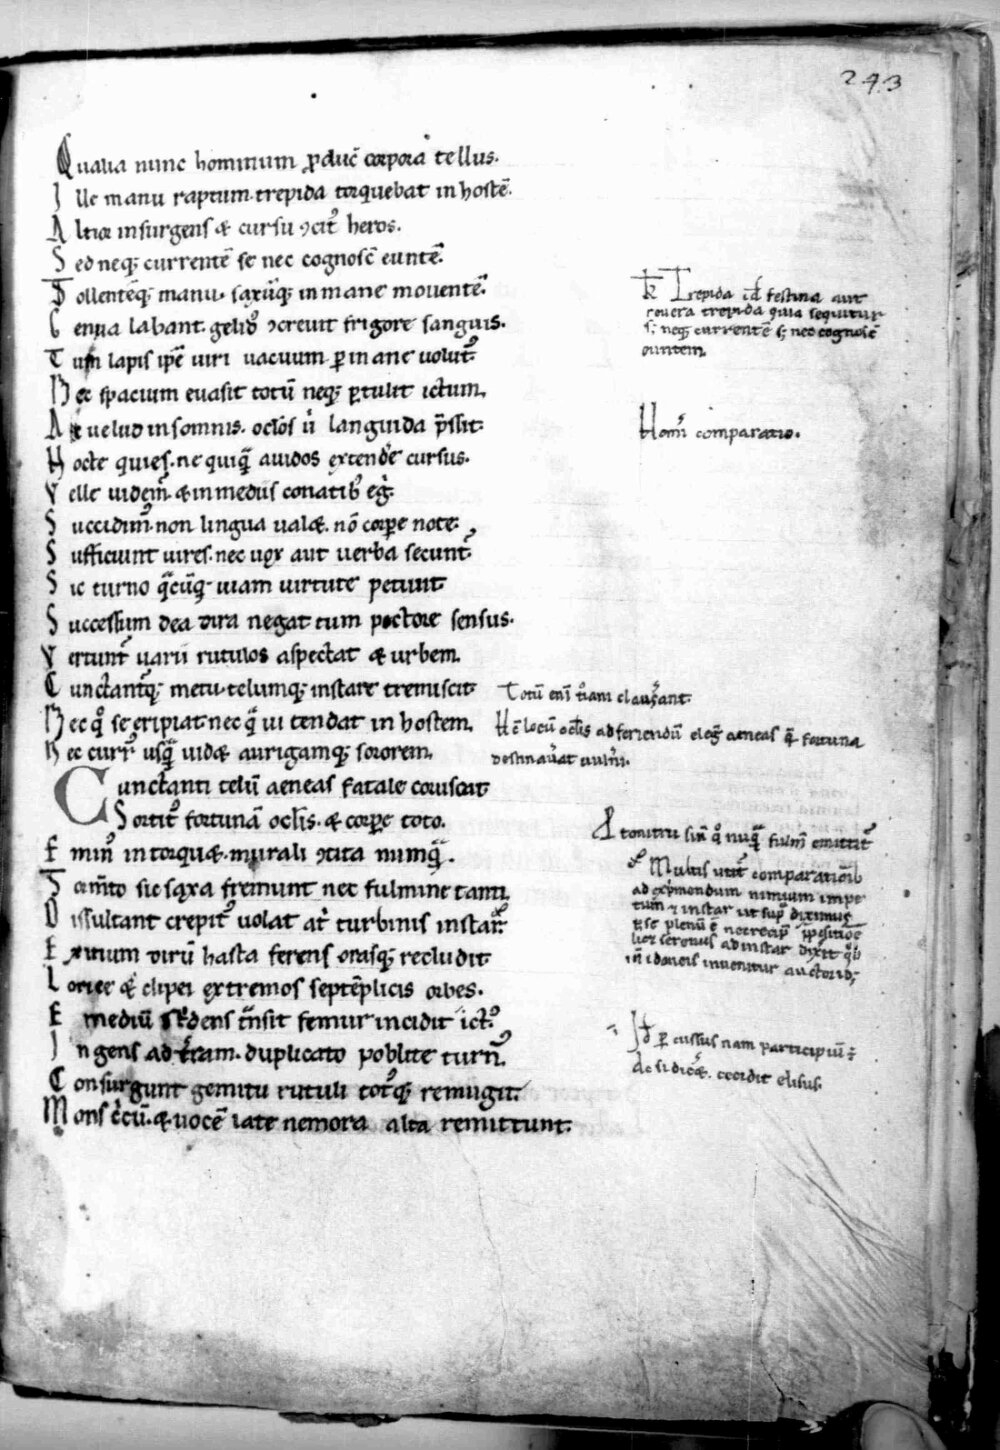 243
Qualia nunc hominum ꝓduc̄ corpora tellus.
Ille manu raptum. trepida torquebat in hostē.
Altior insurgens & cursu ꝯcitꝰ heros.
Sed neqꝫ currentē se nec cognosc̄ euntē.
Tollenteqꝫ manu. saxūqꝫ inmane mouentē.
Genua labant. gelidꝰ ꝯcreuit frigore sanguis.
Tum lapis ip̄e uiri uacuum ꝑ inane uolutꝰ
Nec spacium euasit totū neqꝫ ꝑtulit ictum.
Ac uelud in somnis. oclōs ū languida p̄ssit.
Nocte quies. ne quiq̄ auidos extend̄e cursus.
Velle uidem̄. & in mediis conatibꝰ eḡ.
Succidimꝰ. non lingua ual&. nō corꝑe note.
Sufficiunt uires. nec uox aut uerba secunt̄.
Sic turno q̄cūqꝫ uiam uirtute petiuit
Successum dea dira negat tum pectore sensus.
Vertunt̄ uarii rutulos aspectat & urbem.
Cunctantqꝫ metu. telumqꝫ instare tremiscit
Nec qͦ se eripiat nec q̄ ui tendat in hostem.
Nec curr̄ usq̄ uid& aurigamqꝫ sororem.
Cunctanti telū aeneas fatale coruscat
Sortitꝰ fortunā oclīs. & corꝑe toto.
Eminꝰ intorqu&. murali ꝯcita nunq̄.
Torm̄to sic saxa fremunt nec fulmine tanti
Dissultant crepitꝰ uolat at̄ turbinis instar.
Exitium dirū hasta ferens orasqꝫ recludit
Lorice & clipei extremos septēplicis orbes.
E mediū st̄dens t̄nsit femur incidit ictꝰ.
Ingens ad t̄ram. duplicato poblite turnꝰ.
Consurgunt gemitu rutuli totꝰqꝫ remugit.
Mons c̄cū. & uocē late nemora alta remittunt.
Trepida id̄ festina aut
reuera trepida quia sequitur
s; neqꝫ currentē s; nec cognosc̄
euntem.
Hom̄i comparatio.
Totū eni t̄iam
Hē locū oclīs ad feriendū eleḡ aeneas q̄ fortuna
destinau̅at uuln̄i.
A tonitru sin̄ qͦ nuq̄ fulm̄ emittit̄
Multis utit̄ comparationib
ad exp̄mendum nimium impe
tum & instar ut sup̄ diximus
ꝑ se plenū ē nec recip̄ p̄positioē
lic& seruius ad instar dixit qͦd
in idoneis inuenitur auctorib;
Id̄ ꝑcussus nam participiū ē
ac si dic̄&. cecidit elisus.